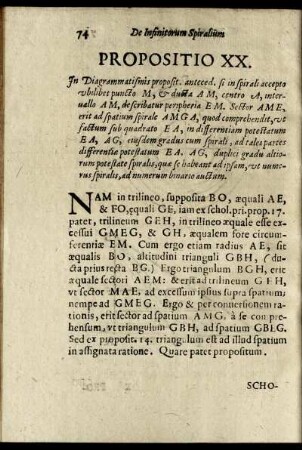 74 De Infinitorum Spiralium
PROPOSITIO XX.
In Diagrammatismis proposit. anteced. si in spirali accepto
vbilibet puncto M, & ducta AM, centro A, inter-
uallo AM, describatur peripheria EM. Sector AME,
erit ad spatium spirale AMGA, quod comprehendit, vt
factum sub quadrato EA, in differentiam potestatum
EA, AG, eiusdem gradus cum spirali, ad tales partes
differentiæ potestatum EA. AG, duplici gradu altio-
rum potestate spiralis, quæ se habeant ad ipsam, vt nume-
rus spiralis, ad numerum binario auctum.
NAM in trilineo, supposita BO, æquali AE,
& FO, equali GE, iam ex schol. pri. prop. 17.
patet, trilineum GEH, in trilineo æquale esse ex-
cessui GMEG, & GH, æqualem fore circum-
ferentiæ EM. Cum ergo etiam radius AE, sit
æqualis BO, altitudini trianguli GBH, (
ducta prius recta BG.) Ergo triangulum BGH, erit
æquale sectori AEM: & erit ad trilineum GFH,
vt sector MAE, ad excessum ipsius supra spatium;
nempe ad GMEG. Ergo & per conuersionem ra-
tionis, erit sector ad spatium AMG, à se con pre-
hensum, vt triangulum GBH, ad spatium GBLG.
Sed ex proposit. 14. triangulum est ad illud spatium
in assignata ratione. Quare patet propositum.
SCHO-